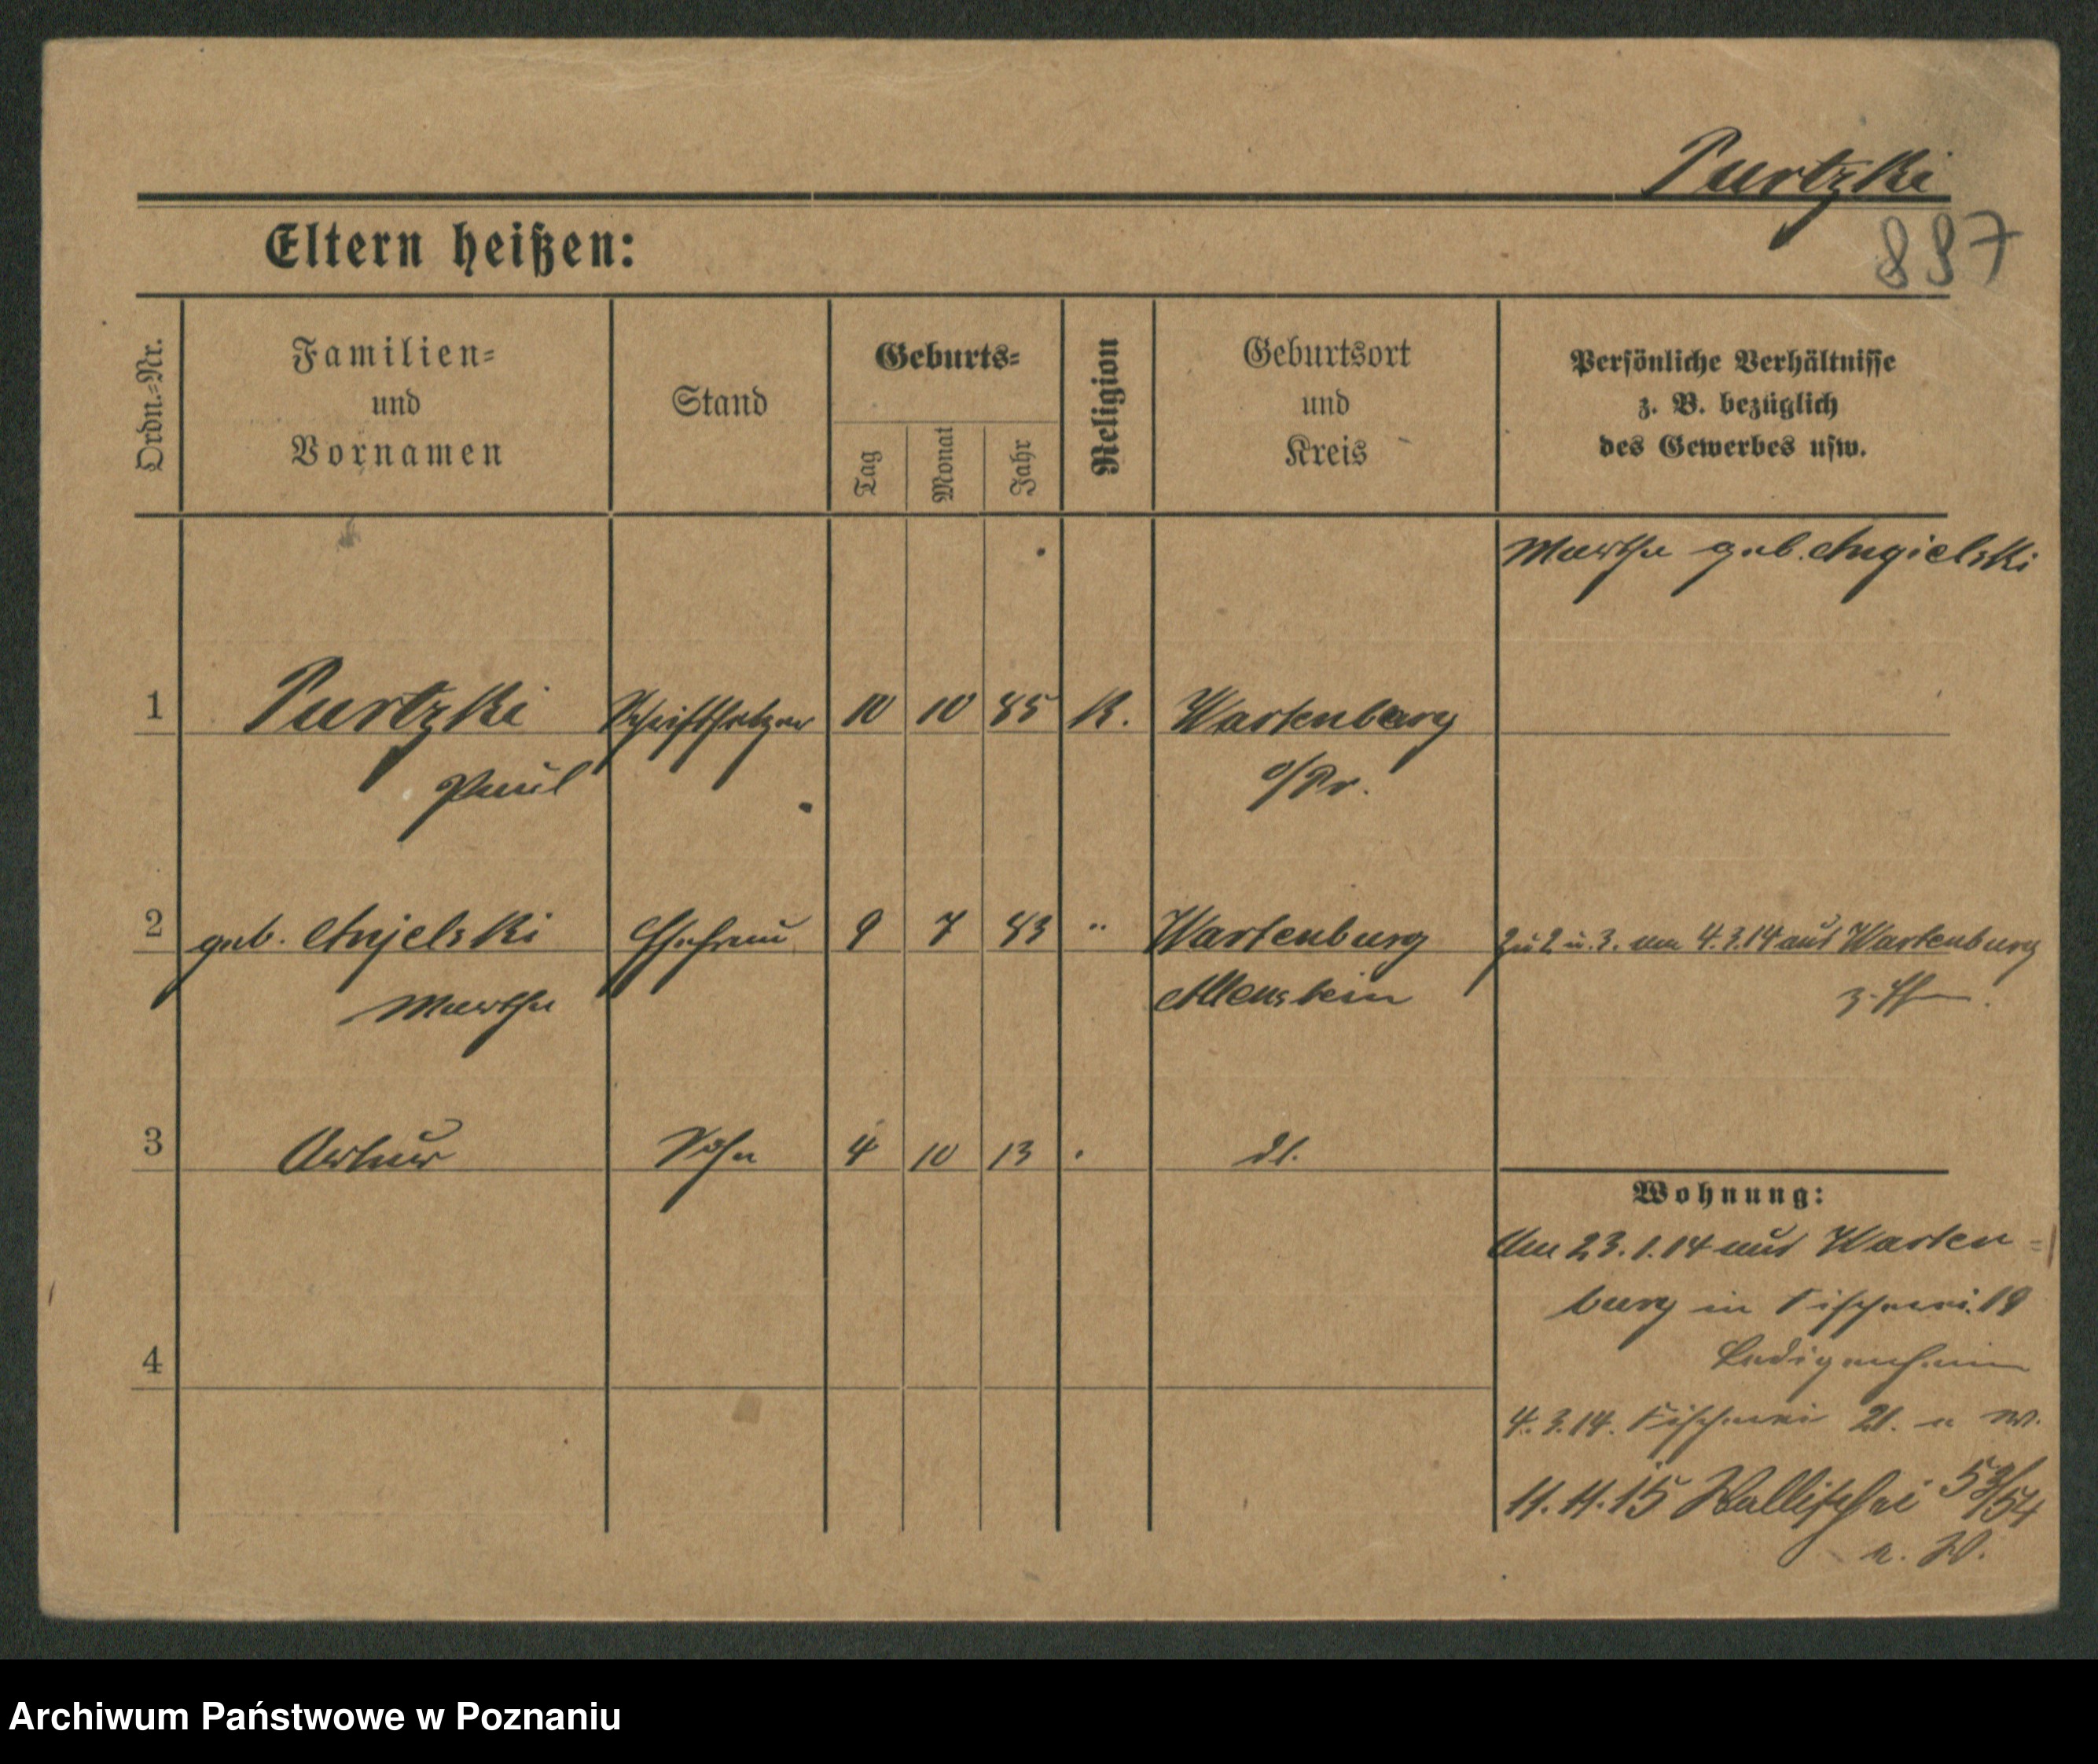 Purtzki
897
Eltern heißen:
Ordn.-Nr.
Familien-
und
Vornamen
Stand
Geburts-
Tag
Monat
Jahr
Religion
Geburtsort
und
Kreis
Persönliche Verhältnisse
z. B. bezüglich
des Gewerbes usw.
Martha geb. Angielski
1 Purtzki Schriftsetzer 10 10 85 K. Wartenburg
Paul o/Pr.
2 geb. Anjelski Ehefrau 9 7 83 " Wartenburg Zu 2 u. 3. am 4.3.14 aus Wartenburg
Martha Allenstein
3 Artur Sohn 4 10 13 " dt.
Wohnung:
Am 23.1.14 aus Warten=
burg in Fischerei 19
Ledigenheim
4
4.3.14. Fischerei 21. e W.
11.11.15 Wallischei 53/54
e. W.
Archiwum Państwowe w Poznaniu